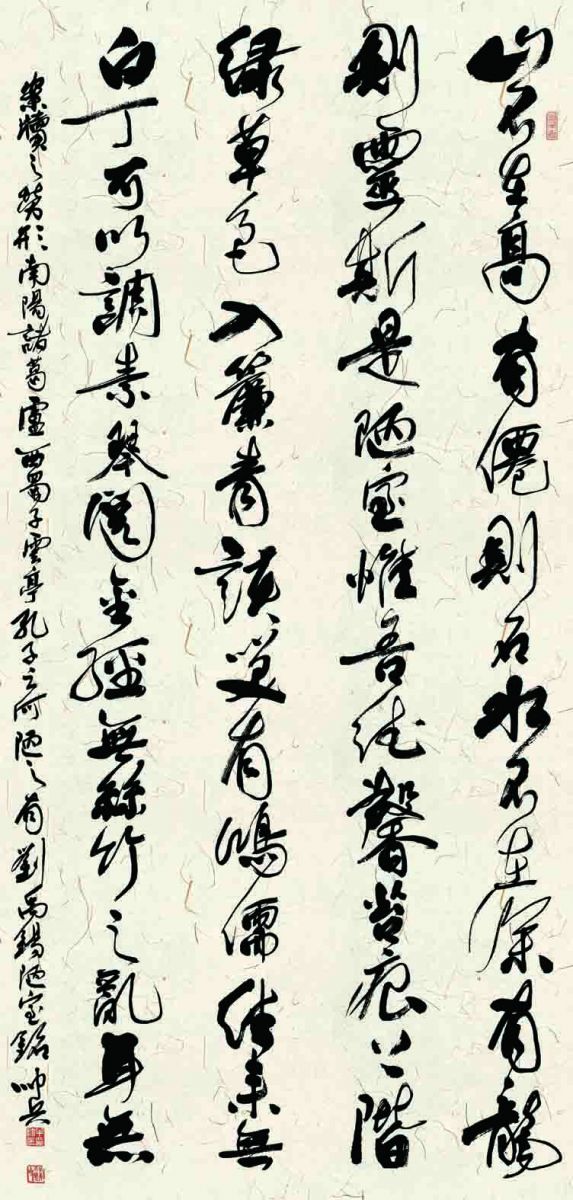 山不在高有僊則名水不在深有龍
則靈斯是陋室惟吾德馨苔痕上階
綠草色入簾青談笑有鴻儒往來無
白丁可以調素琴閱金經無絲竹之亂耳無
案牘之勞形南陽諸葛廬西蜀子雲亭孔子云何陋之有劉禹錫陋室銘